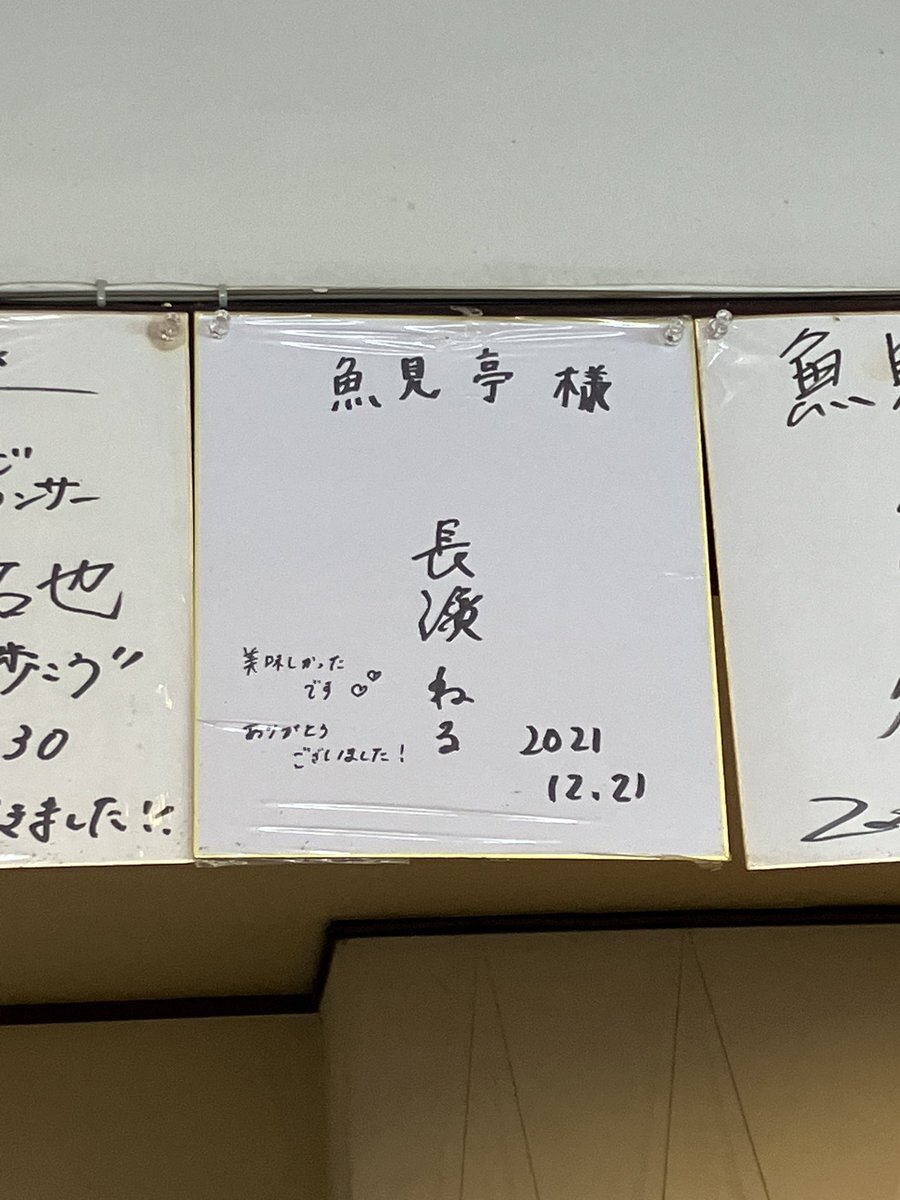 ンサー
也
歩こう"
30
きました!!
魚見亭様
長濱ねる
美味しかった
です♡♡
ありがとう
ございました!
2021
12.21
魚